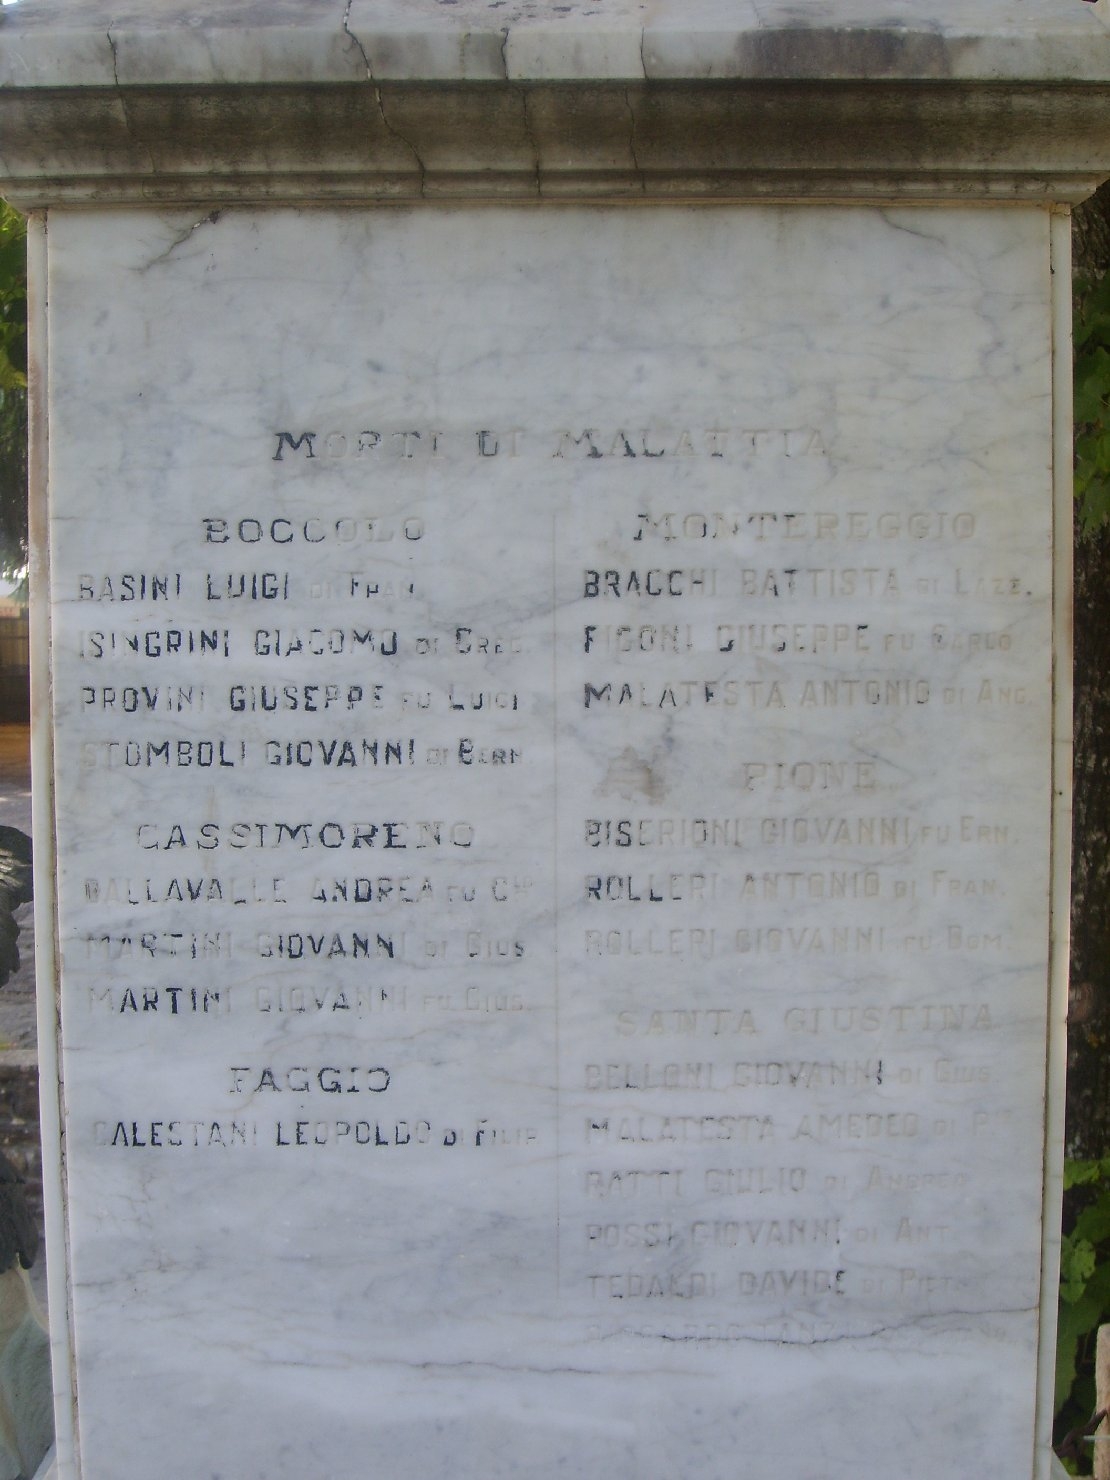 MORTI DI MALATTIA
BOCCOLO
BASINI LUIGI DI FRAN.
ISINGRINI GIACOMO DI GREG.
PROVINI GIUSEPPE FU LUIGI
STOMBOLI GIOVANNI DI BERN.
CASSIMORENO
DALLAVALLE ANDREA FU
MARTINI GIOVANNI DI GIUS.
MARTINI GIOVANNI FU GIUS.
FAGGIO
CALESTANI LEOPOLDO DI FILIP.
MONTEREGGIO
BRACCHI BATTISTA DI LAZZ.
FIGONI GIUSEPPE FU CARLO
MALATESTA ANTONIO DI ANG.
PIONE
BISERIONI GIOVANNI FU ERN.
ROLLERI ANTONIO DI FRAN.
ROLLERI GIOVANNI FU DOM.
SANTA GIUSTINA
BELLONI GIOVANNI DI GIUS.
MALATESTA AMEDEO DI
RATTI GIULIO DI ANDREA
ROSSI GIOVANNI DI ANT.
TEDALDI DAVIDE DI PIET.